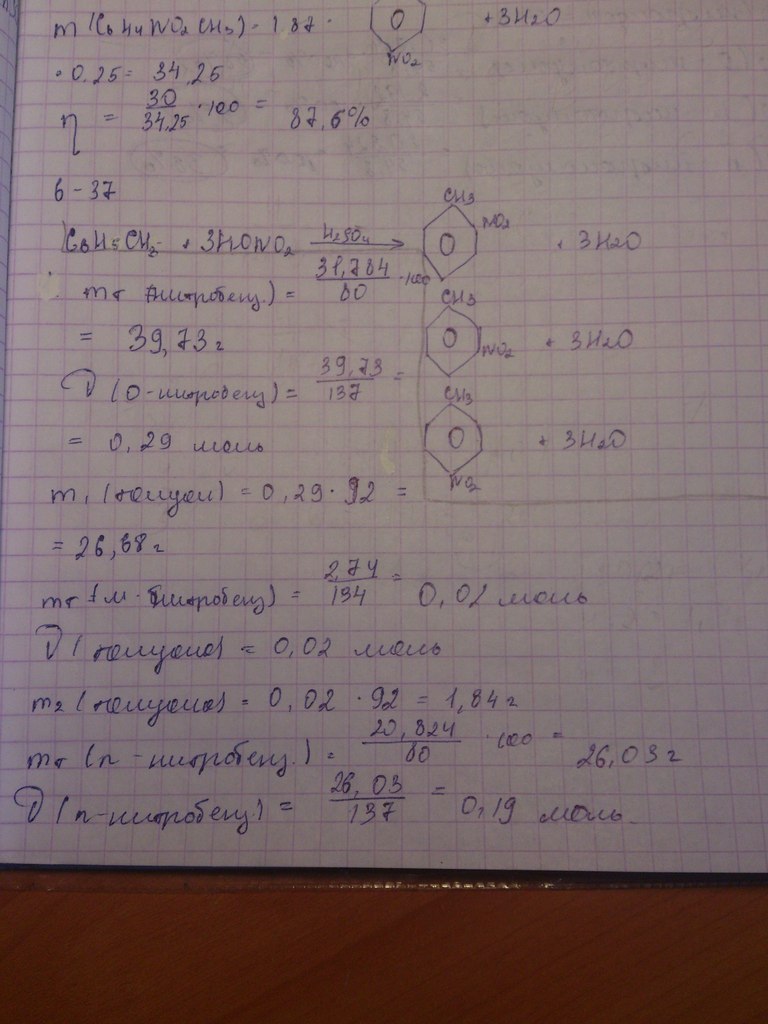 m(C6H4NO2CH3) = 137 · + 3H2O
NO2
· 0,25 = 34,25
η = 30/34,25 · 100 = 87,6%
6 - 37
CH3
NO2
C6H5CH3 + 3HONO2 H2SO4 → + 3H2O
mт нитробенз.) = 31,784/80 · 100
CH3
= 39,73 г
NO2 + 3H2O
ν (о-нитробенз) = 39,73/137 =
CH3
= 0,29 моль + 3H2O
NO2
m1 (толуол) = 0,29 · 92 =
= 26,68 г
mт (м-нитробенз) = 2,74/134 = 0,02 моль
ν (толуола) = 0,02 моль
m2 (толуола) = 0,02 · 92 = 1,84 г
mт (п-нитробенз.) = 20,824/80 · 100 = 26,03 г
ν (п-нитробенз) = 26,03/137 = 0,19 моль.